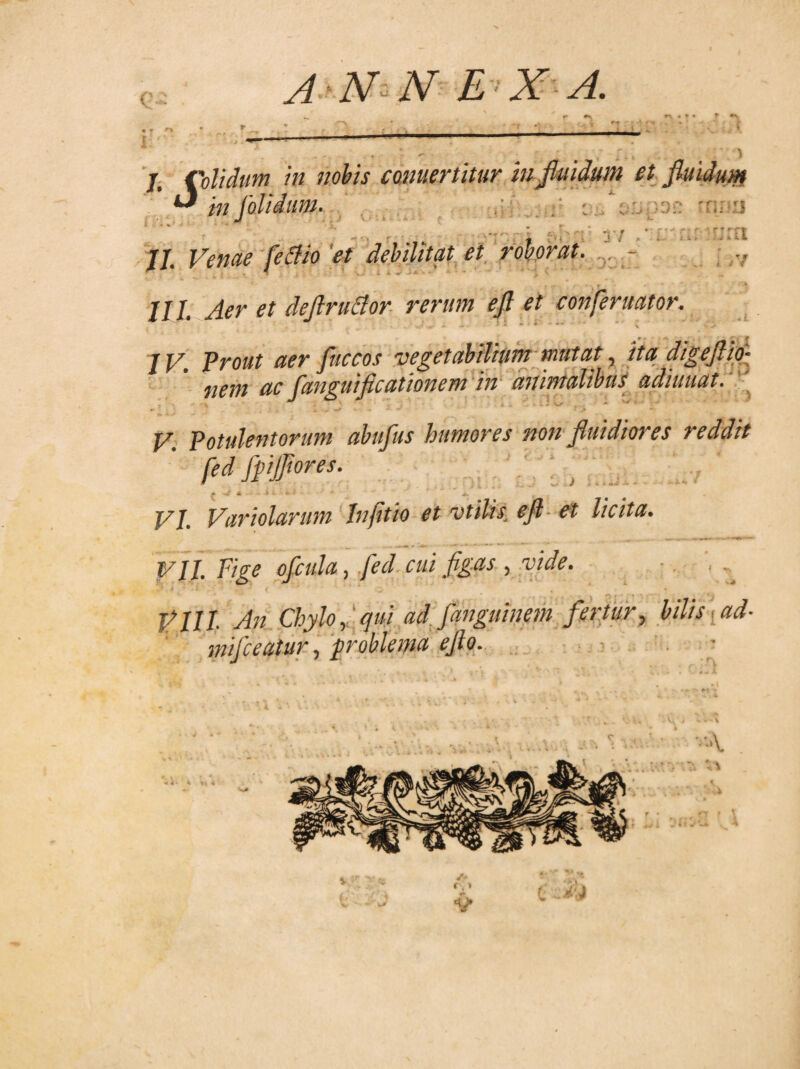 ANNEXA.
I. Solidum in nobis conuertitur in fluidum et fluidum
in ſolidum.
II. Venae ſectio et debilitat et roborat.
III. Aer et deſtructor rerum eſt et conſeruator.
IV. Prout aer ſuccos vegetabilium mutat, ita digeſtio-
nem ac ſanguificationem in animalibus adiuuat.
V. Potulentorum abuſus humores non fluidiores reddit
ſed ſpiſſiores.
VI. Variolarum Inſitio et vtilis eſt et licita.
VII. Fige oſcula, ſed cui figas, vide.
VIII. An Chylo, qui ad ſanguinem fertur, bilis ad-
miſceatur, problema eſto.